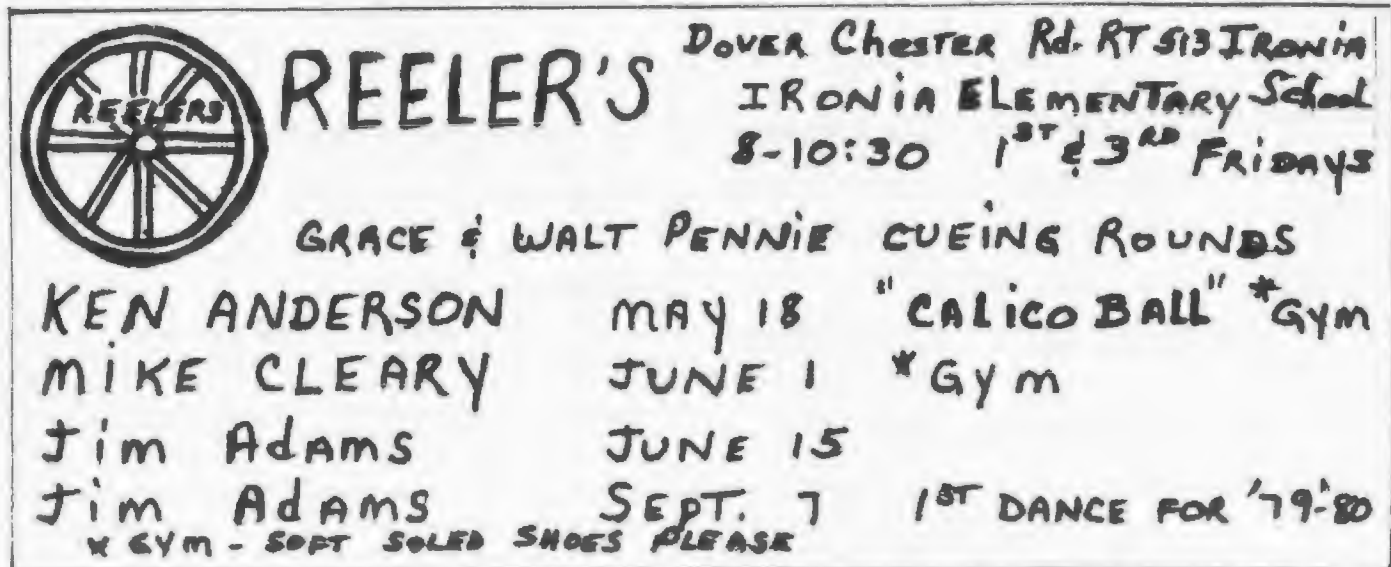 REELERS
REELER'S
DOVER CHESTER Rd. RT 513 IRONiA
IRONiA ELEMENTARY School
8-10:30 1ST & 3RD FRiDAYS
GRACE & WALT PENNiE CUEING ROUNDS
KEN ANDERSON MAY 18 "CALiCO BALL" *GYm
MiKE CLEARY JUNE 1 *GYm
Jim AdAmS JUNE 15
Jim AdAmS SEPT. 7 1ST DANCE FOR '79-'80
* GYm - SOFT SOLED SHOES PLEASE